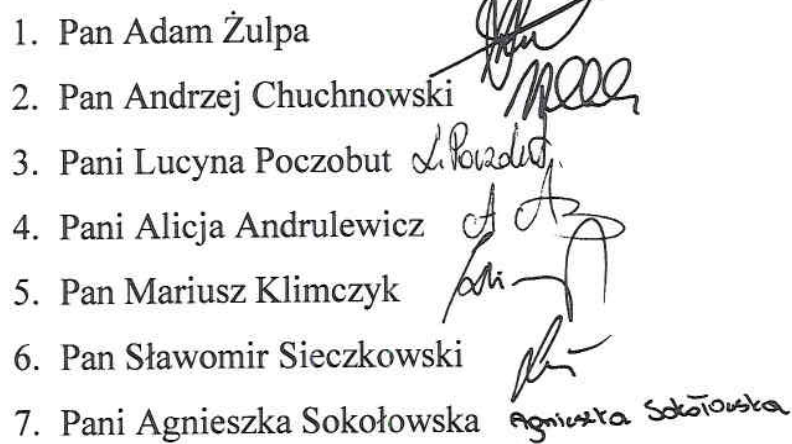 1. Pan Adam Żulpa
2. Pan Andrzej Chuchnowski
3. Pani Lucyna Poczobut L. Poczobut
4. Pani Alicja Andrulewicz
5. Pan Mariusz Klimczyk
6. Pan Sławomir Sieczkowski
7. Pani Agnieszka Sokołowska Agnieszka Sokołowska